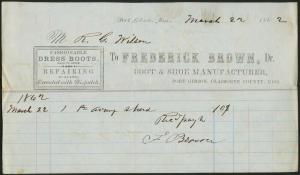 March 22 1862
Mr R. C. Wilson
FASHIONABLE
DRESS BOOTS,
REPAIRING
Executed with Dispatch.
To FREDERICK BROWN, Dr.
BOOT & SHOE MANUFACTURER,
PORT GIBSON, CLAIBORNE COUNTY, MISS.
1862
March 22 1 Pr Army Shoes
Recd payt
F. Brown